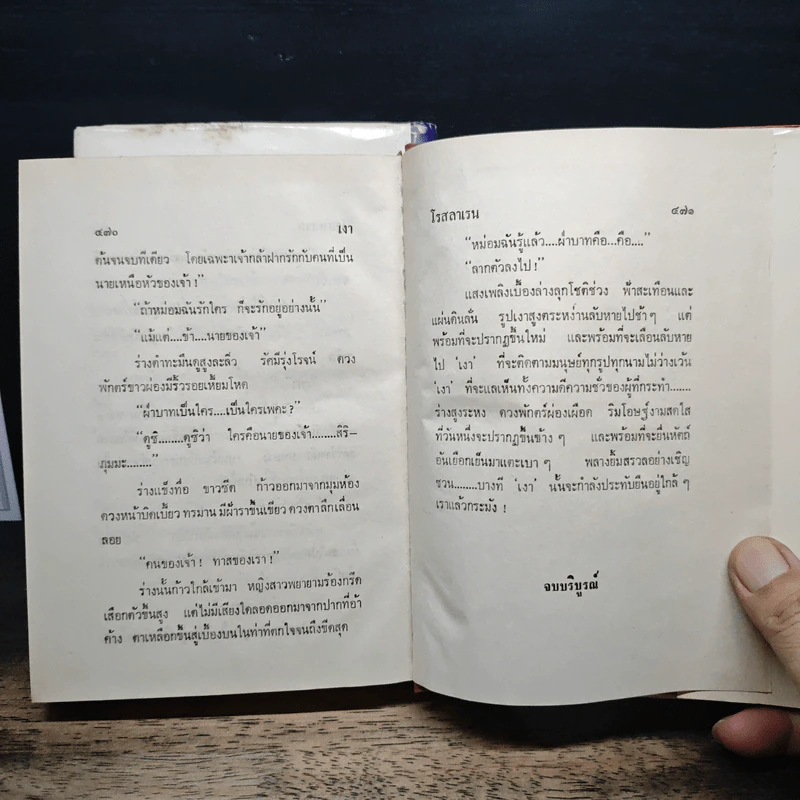 ๔๗๐ เงา
ต้นจนจบทีเดียว โดยเฉพาะเจ้ากล้าฝากรักกับคนที่เป็น
นายเหนือหัวของเจ้า!”
“ถ้าหม่อมฉันรักใคร ก็จะรักอยู่อย่างนั้น”
“แม้แต่....ข้า....นายของเจ้า”
ร่างดำทะมึนดูสูงละลิ่ว รัศมีรุ่งโรจน์ ดวง
พักตร์ขาวผ่องมีริ้วรอยเหี้ยมโหด
“ฝ่าบาทเป็นใคร....เป็นใครเพคะ?”
“ดูซิ........ดูซิว่า ใครคือนายของเจ้า........สิริ–
กุมมะ........”
ร่างแข็งทื่อ ขาวซีด ก้าวออกมาจากมุมห้อง
ดวงหน้าบิดเบี้ยว ทรมาน มีฝ้าราขึ้นเขียว ดวงตาลึกเลื่อน
ลอย
“คนของเจ้า! ทาสของเรา!”
ร่างนั้นก้าวใกล้เข้ามา หญิงสาวพยายามร้องกรีด
เสือกตัวขึ้นสูง แต่ไม่มีเสียงใดลอดออกมาจากปากที่อ้า
ค้าง ตาเหลือกขึ้นสู่เบื้องบนในท่าที่ตกใจจนถึงขีดสุด
โรสลาเรน ๔๗๑
“หม่อมฉันรู้แล้ว....ฝ่าบาทคือ...คือ....”
“ลากตัวลงไป!”
แสงเพลิงเบื้องล่างลุกโชติช่วง ฟ้าสะเทือนและ
แผ่นดินลั่น รูปเงาสูงตระหง่านลับหายไปช้าๆ แต่
พร้อมที่จะปรากฏขึ้นใหม่ และพร้อมที่จะเลือนลับหาย
ไป ‘เงา’ ที่จะติดตามมนุษย์ทุกรูปทุกนามไม่ว่างเว้น
‘เงา’ ที่จะแลเห็นทั้งความดีความชั่วของผู้ที่กระทำ.......
ร่างสูงระหง ดวงพักตร์ผ่องเผือด ริมโอษฐ์งามสดใส
ที่วันหนึ่งจะปรากฏขึ้นข้างๆ และพร้อมที่จะยื่นหัตถ์
อันเยือกเย็นมาแตะเบาๆ พลางยิ้มสรวลอย่างเชิญ
ชวน........บางที ‘เงา’ นั้นจะกำลังประทับยืนอยู่ใกล้ๆ
เราแล้วกระมัง!
จบบริบูรณ์